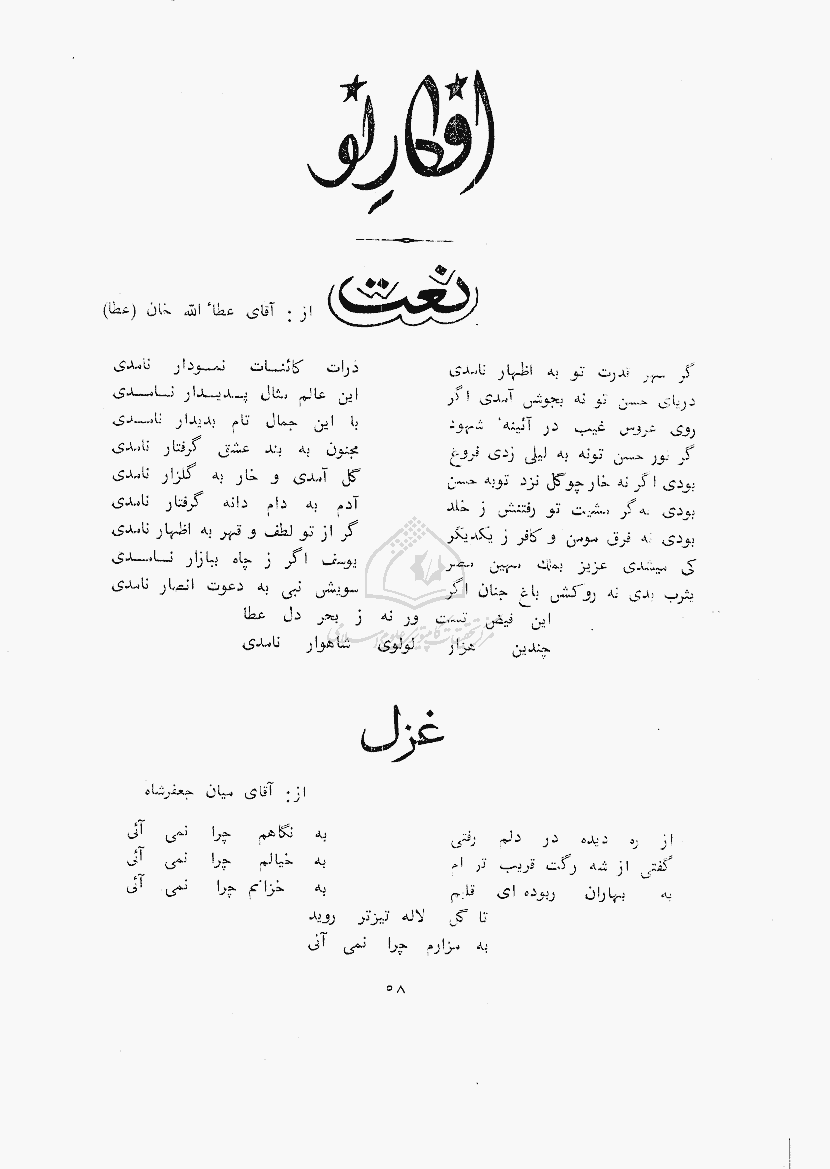 افکارِ نو
نعت
از : آقای عطاٴ الله خان (عطا)
گر مهر قدرت تو به اظهار نامدی ذرات کائنات نمودار نامدی
دریای حسن تو نه بجوش آمدی اگر این عالم مثال پدیدار نامدی
روی عروس غیب در آئینهٴ شهود با این جمال تام بدیدار نامدی
گر نور حسن تونه به لیلی زدی فروغ مجنون به بند عشق گرفتار نامدی
بودی اگر نه خار چوگل نزد توبه حسن گل آمدی و خار به گلزار نامدی
بودی نه گر مشیت تو رفتنش ز خلد آدم به دام دانه گرفتار نامدی
بودی نه فرق مومن و کافر ز یکدیگر گر از تو لطف و قهر به اظهار نامدی
کی میشدی عزیز بملک مهین مصر یوسف اگر ز چاه ببازار نامدی
یثرب بدی نه روکش باغ جنان اگر سویش نبی به دعوت انصار نامدی
این فیض تست ور نه ز بحر دل عطا
چندین هزار لولوی شاهوار نامدی
غزل
از: آقای میان جعفرشاه
از ره دیده در دلم رفتی به نگاهم چرا نمی آئی
گفتی از شه رگت قریب تر ام به خیالم چرا نمی آئی
به بهاران ربوده ای قلبم به خزانم چرا نمی آئی
تا گل لاله تیزتر روید
به مزارم چرا نمی آئی
۵۸